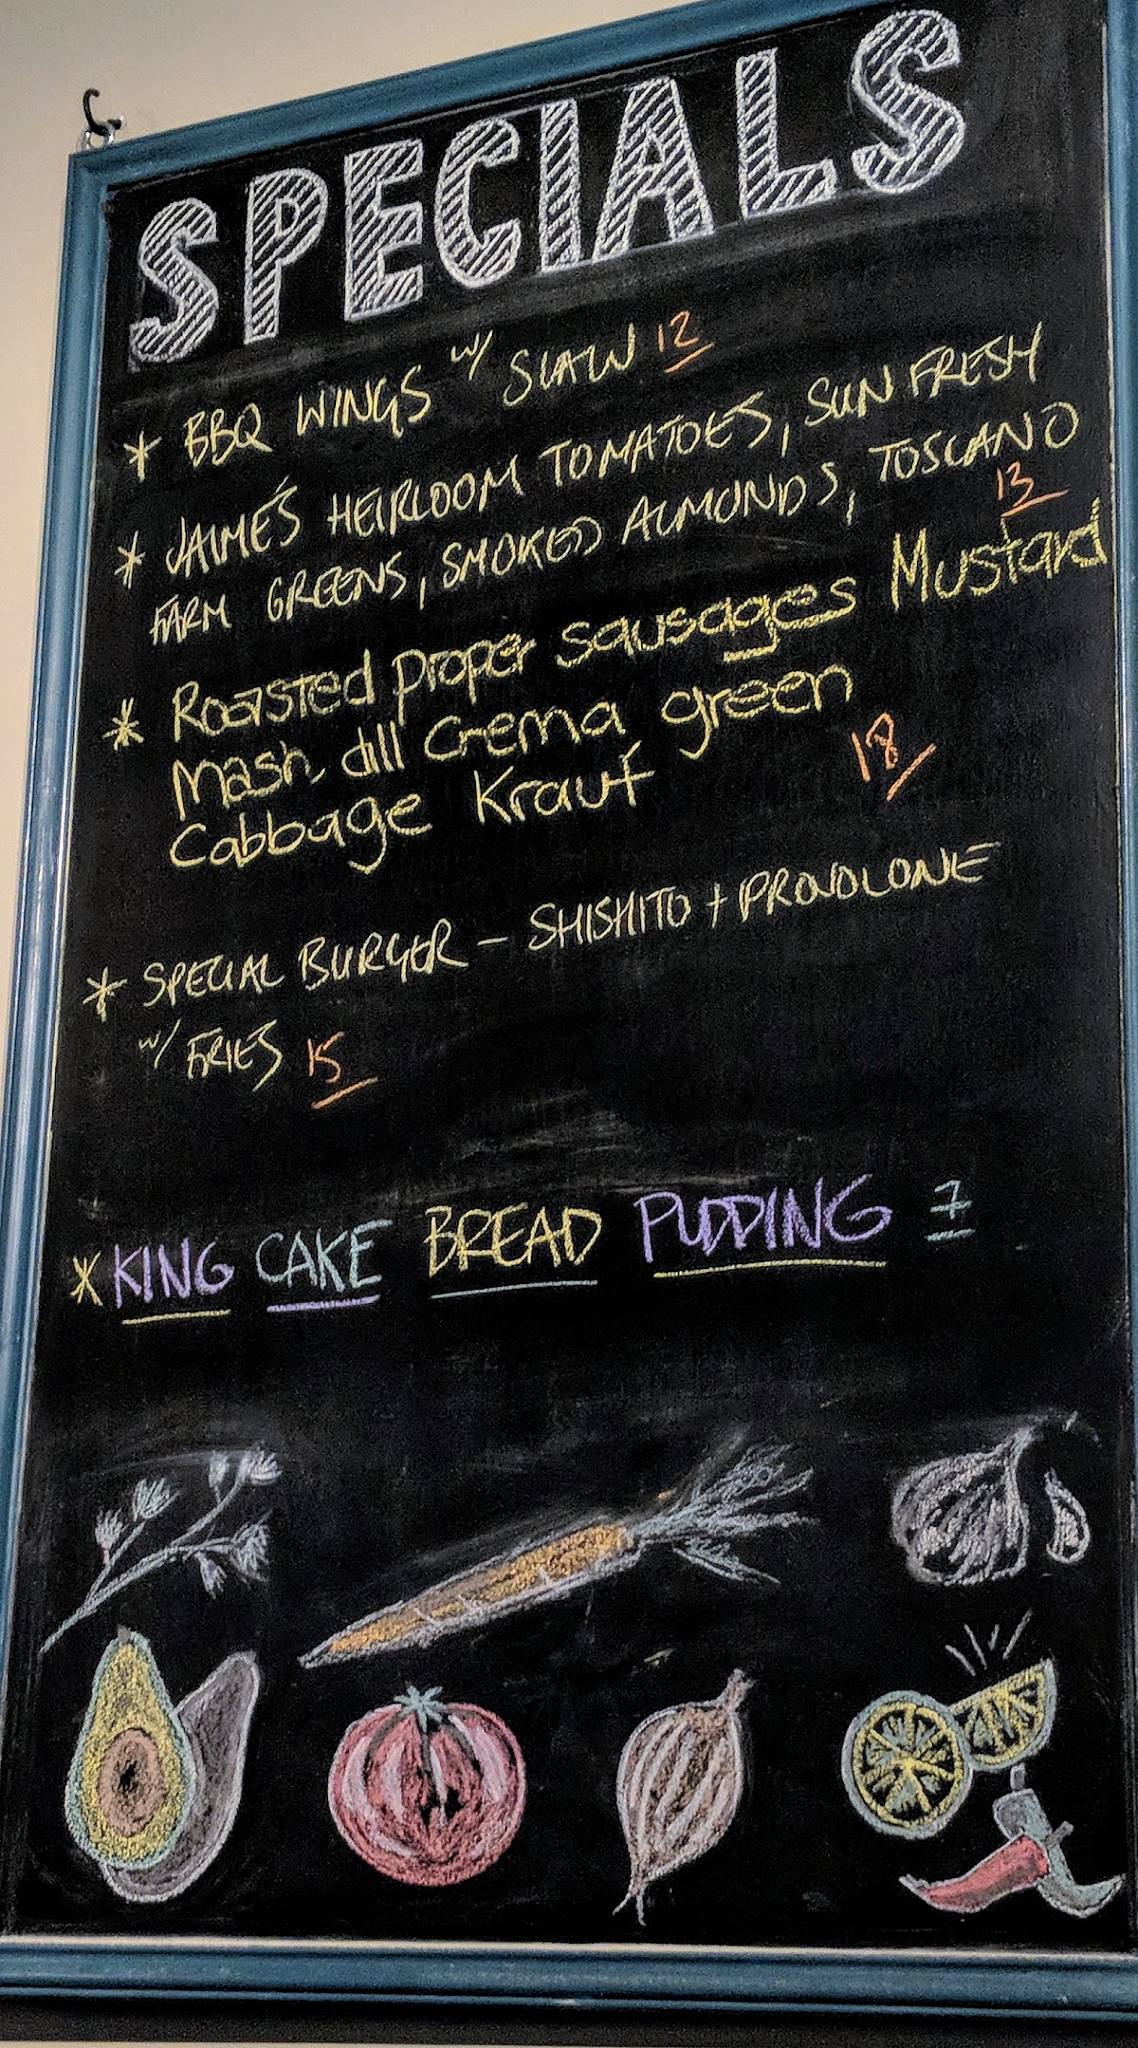 SPECIALS
* BBQ WINGS w/ SLAW 12
* JAIME'S HEIRLOOM TOMATOES, SUN FRESH
FARM GREENS, SMOKED ALMONDS, TOSCANO
13
* Roasted proper sausages Mustard
Mash, dill Crema green
Cabbage Kraut 18
* SPECIAL BURGER - SHISHITO + PROVOLONE
w/ FRIES 15
* KING CAKE BREAD PUDDING 7